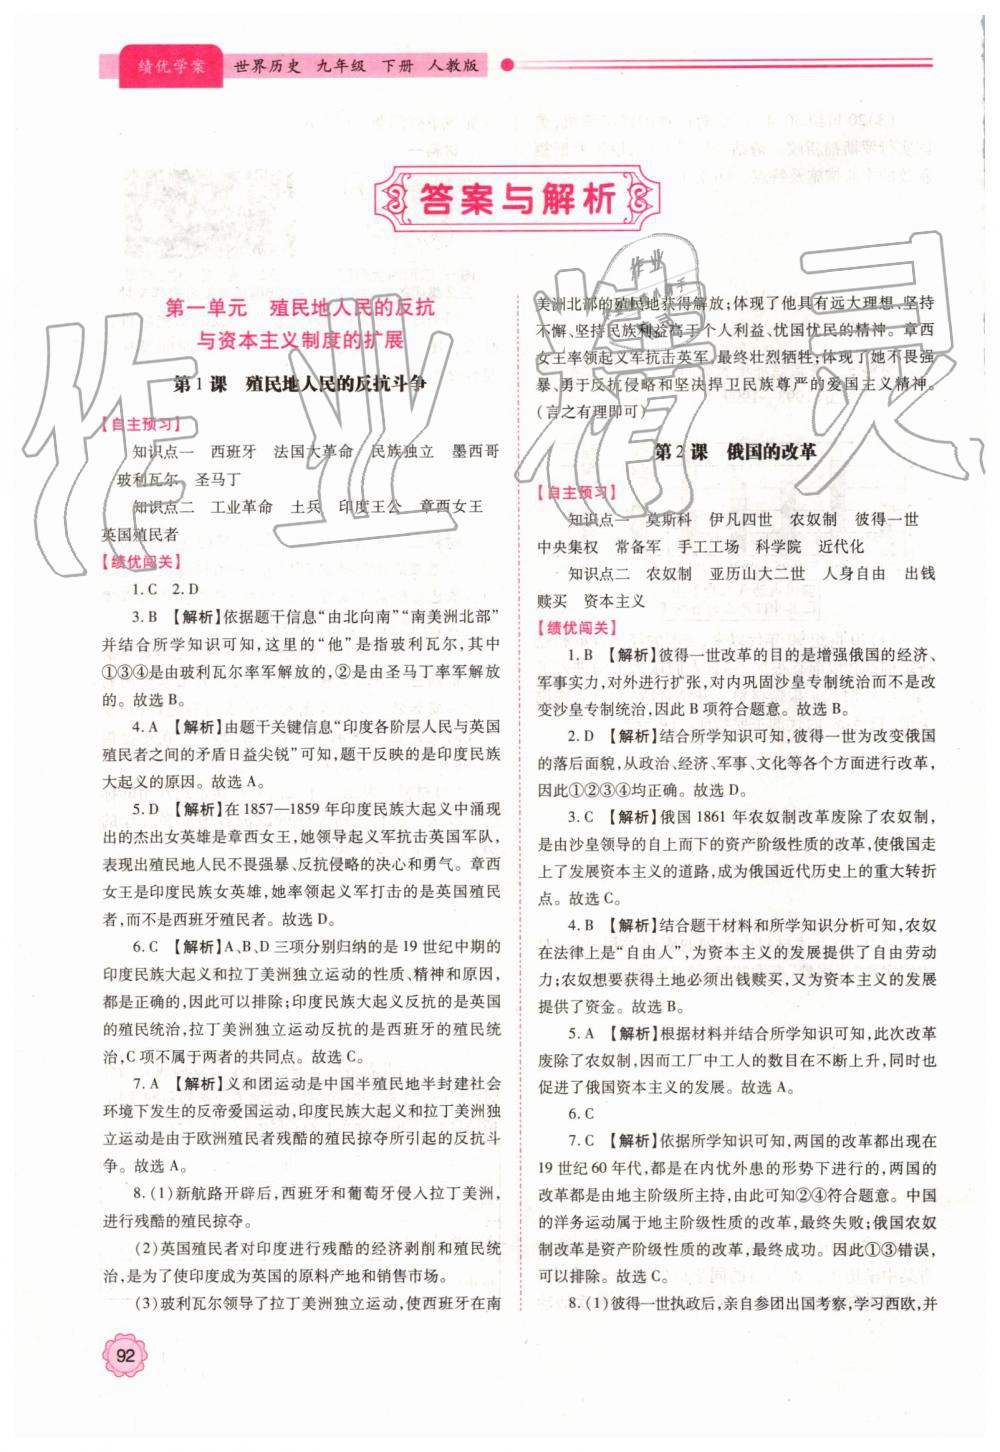 绩优学案 世界历史 九年级 下册 人教版
答案与解析
第一单元 殖民地人民的反抗
与资本主义制度的扩展
第1课 殖民地人民的反抗斗争
【自主预习】
知识点一 西班牙 法国大革命 民族独立 墨西哥
玻利瓦尔 圣马丁
知识点二 工业革命 土兵 印度王公 章西女王
英国殖民者
【绩优闯关】
1.C 2.D
3.B 【解析】依据题干信息“由北向南”“南美洲北部”
并结合所学知识可知,这里的“他”是指玻利瓦尔,其中
①③④是由玻利瓦尔率军解放的,②是由圣马丁率军解放
的。故选B。
4.A 【解析】由题干关键信息“印度各阶层人民与英国
殖民者之间的矛盾日益尖锐”可知,题干反映的是印度民族
大起义的原因。故选A。
5.D 【解析】在1857—1859年印度民族大起义中涌现
出的杰出女英雄是章西女王,她领导起义军抗击英国军队,
表现出殖民地人民不畏强暴、反抗侵略的决心和勇气。章西
女王是印度民族女英雄,她率领起义军打击的是英国殖民
者,而不是西班牙殖民者。故选D。
6.C 【解析】A、B、D三项分别归纳的是19世纪中期的
印度民族大起义和拉丁美洲独立运动的性质、精神和原因,
都是正确的,因此可以排除;印度民族大起义反抗的是英国
的殖民统治,拉丁美洲独立运动反抗的是西班牙的殖民统
治,C项不属于两者的共同点。故选C。
7.A 【解析】义和团运动是中国半殖民地半封建社会
环境下发生的反帝爱国运动,印度民族大起义和拉丁美洲独
立运动是由于欧洲殖民者残酷的殖民掠夺所引起的反抗斗
争。故选A。
8.(1)新航路开辟后,西班牙和葡萄牙侵入拉丁美洲,
进行残酷的殖民掠夺。
(2)英国殖民者对印度进行残酷的经济剥削和殖民统
治,是为了使印度成为英国的原料产地和销售市场。
(3)玻利瓦尔领导了拉丁美洲独立运动,使西班牙在南
美洲北部的殖民地获得解放;体现了他具有远大理想、坚持
不懈、坚持民族利益高于个人利益、忧国忧民的精神。章西
女王率领起义军抗击英军,最终壮烈牺牲;体现了她不畏强
暴、勇于反抗侵略和坚决捍卫民族尊严的爱国主义精神。
(言之有理即可)
第2课 俄国的改革
【自主预习】
知识点一 莫斯科 伊凡四世 农奴制 彼得一世
中央集权 常备军 手工工场 科学院 近代化
知识点二 农奴制 亚历山大二世 人身自由 出钱
赎买 资本主义
【绩优闯关】
1.B 【解析】彼得一世改革的目的是增强俄国的经济、
军事实力,对外进行扩张,对内巩固沙皇专制统治而不是改
变沙皇专制统治,因此B项符合题意。故选B。
2.D 【解析】结合所学知识可知,彼得一世为改变俄国
的落后面貌,从政治、经济、军事、文化等各个方面进行改革,
因此①②③④均正确。故选D。
3.C 【解析】俄国1861年农奴制改革废除了农奴制,
是由沙皇领导的自上而下的资产阶级性质的改革,使俄国走
上了发展资本主义的道路,成为俄国近代历史上的重大转折
点。故选C。
4.B 【解析】结合题干材料和所学知识分析可知,农奴
在法律上是“自由人”,为资本主义的发展提供了自由劳动
力;农奴想要获得土地必须出钱赎买,又为资本主义的发展
提供了资金。故选B。
5.A 【解析】根据材料并结合所学知识可知,此次改革
废除了农奴制,因而工厂中工人的数目在不断上升,同时也
促进了俄国资本主义的发展。故选A。
6.C
7.C 【解析】依据所学知识可知,两国的改革都出现在
19世纪60年代,都是在内忧外患的形势下进行的,两国的
改革都是由地主阶级所主持,由此可知②④符合题意。中国
的洋务运动属于地主阶级性质的改革,最终失败;俄国农奴
制改革是资产阶级性质的改革,最终成功。因此①③错误,
可以排除。故选C。
8.(1)彼得一世执政后,亲自参团出国考察,学习西欧,并
92
作业精灵